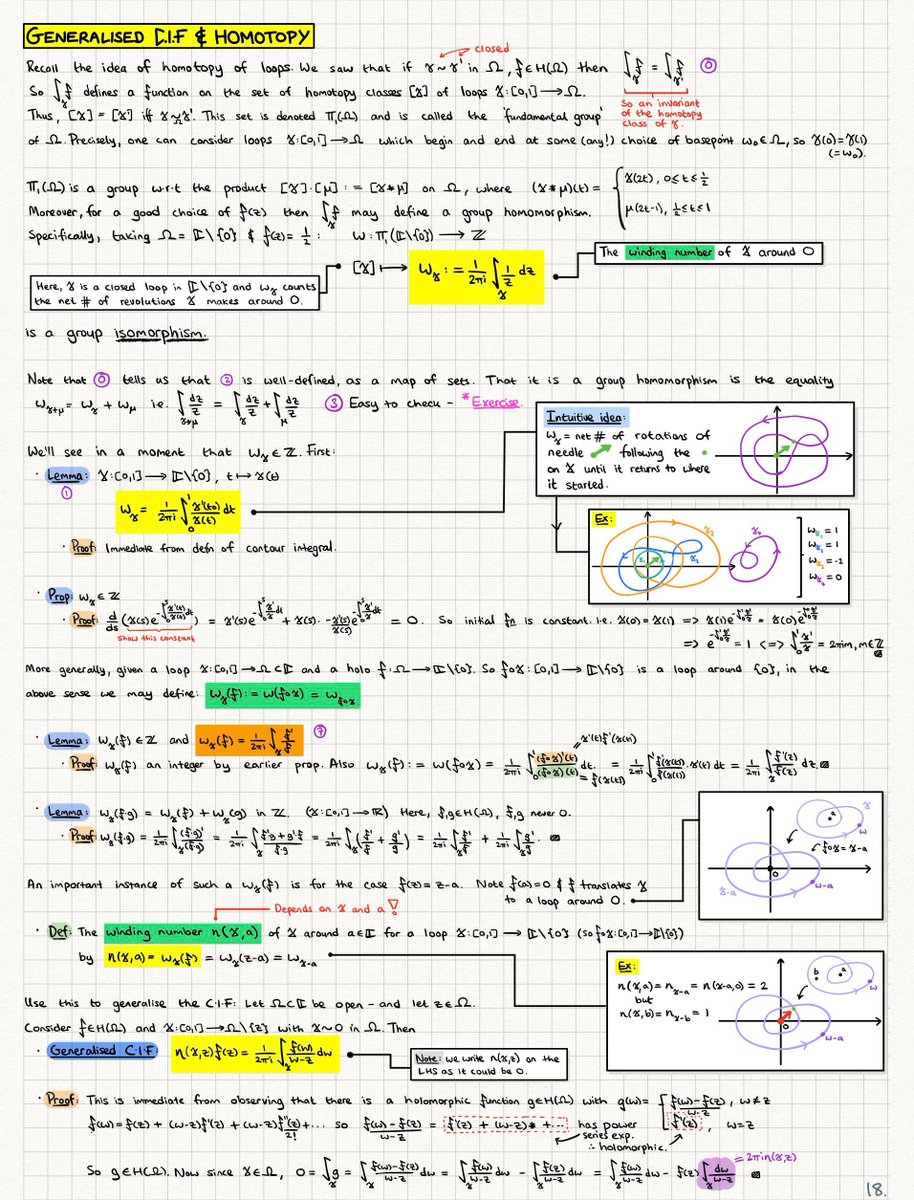 GENERALISED C.I.F & HOMOTOPY
closed
Recall the idea of homotopy of loops. We saw that if γ ~ γ' in Ω, f∈H(Ω) then ∫_γ f = ∫_γ' f ⓪
So ∫_γ f defines a function on the set of homotopy classes [γ] of loops γ:[0,1]→Ω.
So an invariant of the homotopy class of γ.
Thus, [γ] = [γ'] iff γ ~_Ω γ'. This set is denoted π₁(Ω) and is called the 'fundamental group'
of Ω. Precisely, one can consider loops γ:[0,1]→Ω which begin and end at some (any!) choice of basepoint w₀∈Ω, so γ(0)=γ(1)
(=w₀).
π₁(Ω) is a group w.r.t the product [γ]·[μ] := [γ*μ] on Ω, where (γ*μ)(t) = { γ(2t), 0≤t≤1/2
μ(2t-1), 1/2≤t≤1
Moreover, for a good choice of f(z) then ∫_γ f may define a group homomorphism.
Specifically, taking Ω = ℂ\{0} & f(z) = 1/z : W: π₁(ℂ\{0}) → ℤ
The winding number of γ around 0
[γ] ↦ W_γ := 1/2πi ∫_γ 1/z dz
Here, γ is a closed loop in ℂ\{0} and w_γ counts
the net # of revolutions γ makes around 0.
is a group isomorphism.
Note that ⓪ tells us that ② is well-defined, as a map of sets. That it is a group homomorphism is the equality
W_γ*μ = W_γ + W_μ i.e. ∫_γ*μ dz/z = ∫_γ dz/z + ∫_μ dz/z ③ Easy to check - *Exercise.
Intuitive idea:
w_γ = net # of rotations of
needle following the •
on γ until it returns to where
it started.
We'll see in a moment that W_γ∈ℤ. First:
· Lemma: γ:[0,1]→ℂ\{0}, t↦γ(t)
①
W_γ = 1/2πi ∫₀¹ γ'(t)/γ(t) dt
Ex:
γ₁ γ₂ γ₃ γ₄
w_γ₁ = 1
w_γ₂ = 1
w_γ₃ = -2
w_γ₄ = 0
· Proof: Immediate from defn of contour integral.
· Prop: w_γ∈ℤ
· Proof: d/ds (γ(s)e^{-∫₀ˢ γ'(t)/γ(t) dt}) = γ'(s)e^{-∫₀ˢ γ'/γ dt} + γ(s)·-γ'(s)/γ(s) e^{-∫₀ˢ γ'/γ dt} = 0. So initial fn is constant. i.e. γ(0) = γ(1) => γ(1)e^{-∫₀¹ γ'/γ} = γ(0)e^{-∫₀⁰ γ'/γ}
show this constant
=> e^{-∫₀¹ γ'/γ} = 1 <=> ∫₀¹ γ'/γ = 2πim, m∈ℤ
More generally, given a loop γ:[0,1]→Ω⊂ℂ and a holo f:Ω→ℂ\{0}. So f∘γ:[0,1]→ℂ\{0} is a loop around {0}, in the
above sense we may define: W_γ(f) := W(f∘γ) = W_f∘γ
· Lemma: W_γ(f)∈ℤ and W_γ(f) = 1/2πi ∫_γ f'/f ⑦
= γ'(t)f'(γ(t))
· Proof: W_γ(f) an integer by earlier prop. Also W_γ(f) := W(f∘γ) = 1/2πi ∫₀¹ (f∘γ)'(t)/(f∘γ)(t) dt. = 1/2πi ∫₀¹ f'(γ(t))/f(γ(t)) · γ'(t) dt = 1/2πi ∫_γ f'(z)/f(z) dz.
= f(γ(t))
· Lemma: W_γ(f·g) = W_γ(f) + W_γ(g) in ℤ. (γ:[0,1]→ℝ) Here, f,g∈H(Ω), f,g never 0.
· Proof: W_γ(f·g) = 1/2πi ∫_γ (f·g)'/(f·g) = 1/2πi ∫_γ f'g+g'f/f·g = 1/2πi ∫_γ (f'/f + g'/g) = 1/2πi ∫_γ f'/f + 1/2πi ∫_γ g'/g.
γ
a
w
f∘γ = γ-a
0
γ-a
w-a
An important instance of such a W_γ(f) is for the case f(z) = z-a. Note f(a)=0 & f translates γ
to a loop around 0.
Depends on γ and a!
· Def: The winding number n(γ,a) of γ around a∈ℂ for a loop γ:[0,1]→ℂ\{0} (so f∘γ:[0,1]→ℂ\{0})
by n(γ,a) = W_γ(f) = W_γ(z-a) = W_γ-a
Ex:
n(γ,a) = n_γ-a = n(γ-a,0) = 2
but
n(γ,b) = n_γ-b = 1
b
a
w
0
w-a
Use this to generalise the C.I.F: Let Ω⊂ℂ be open - and let z∈Ω.
Consider f∈H(Ω) and γ:[0,1]→Ω\{z} with γ~0 in Ω. Then
· Generalised C.I.F: n(γ,z)f(z) = 1/2πi ∫_γ f(w)/w-z dw
Note: we write n(γ,z) on the
LHS as it could be 0.
· Proof: This is immediate from observing that there is a holomorphic function g∈H(Ω) with g(w) = { f(w)-f(z)/w-z, w≠z
f'(z), w=z
f(w) = f(z) + (w-z)f'(z) + (w-z)f''(z)/2! + ... so f(w)-f(z)/w-z = f'(z) + (w-z)* + ... has power
series exp.
∴ holomorphic.
So g∈H(Ω). Now since γ∈Ω, 0 = ∫_γ g = ∫_γ f(w)-f(z)/w-z dw = ∫_γ f(w)/w-z dw - ∫_γ f(z)/w-z dw = ∫_γ f(w)/w-z dw - f(z) ∫_γ dw/w-z
= 2πin(γ,z)
18.